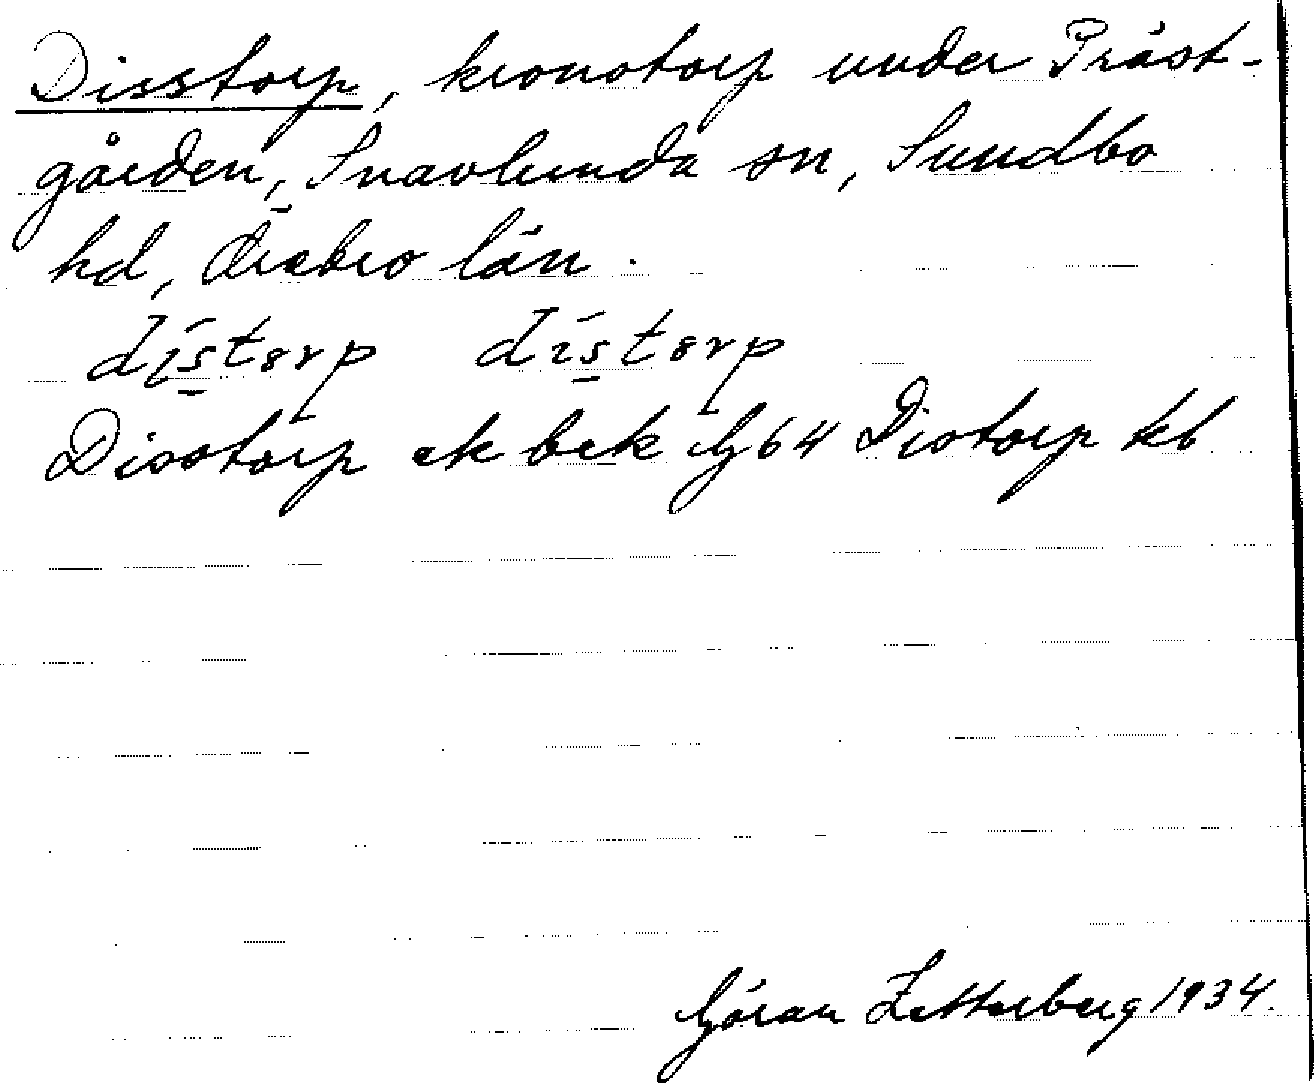 Disstorp, kronotorp under Präst-
gården, Snavlunda sn, Sundbo
hd, Örebro län.
dístorp dístorp
Disstorp ek bek G64 Distorp kb
Göran Zetterberg 1934.